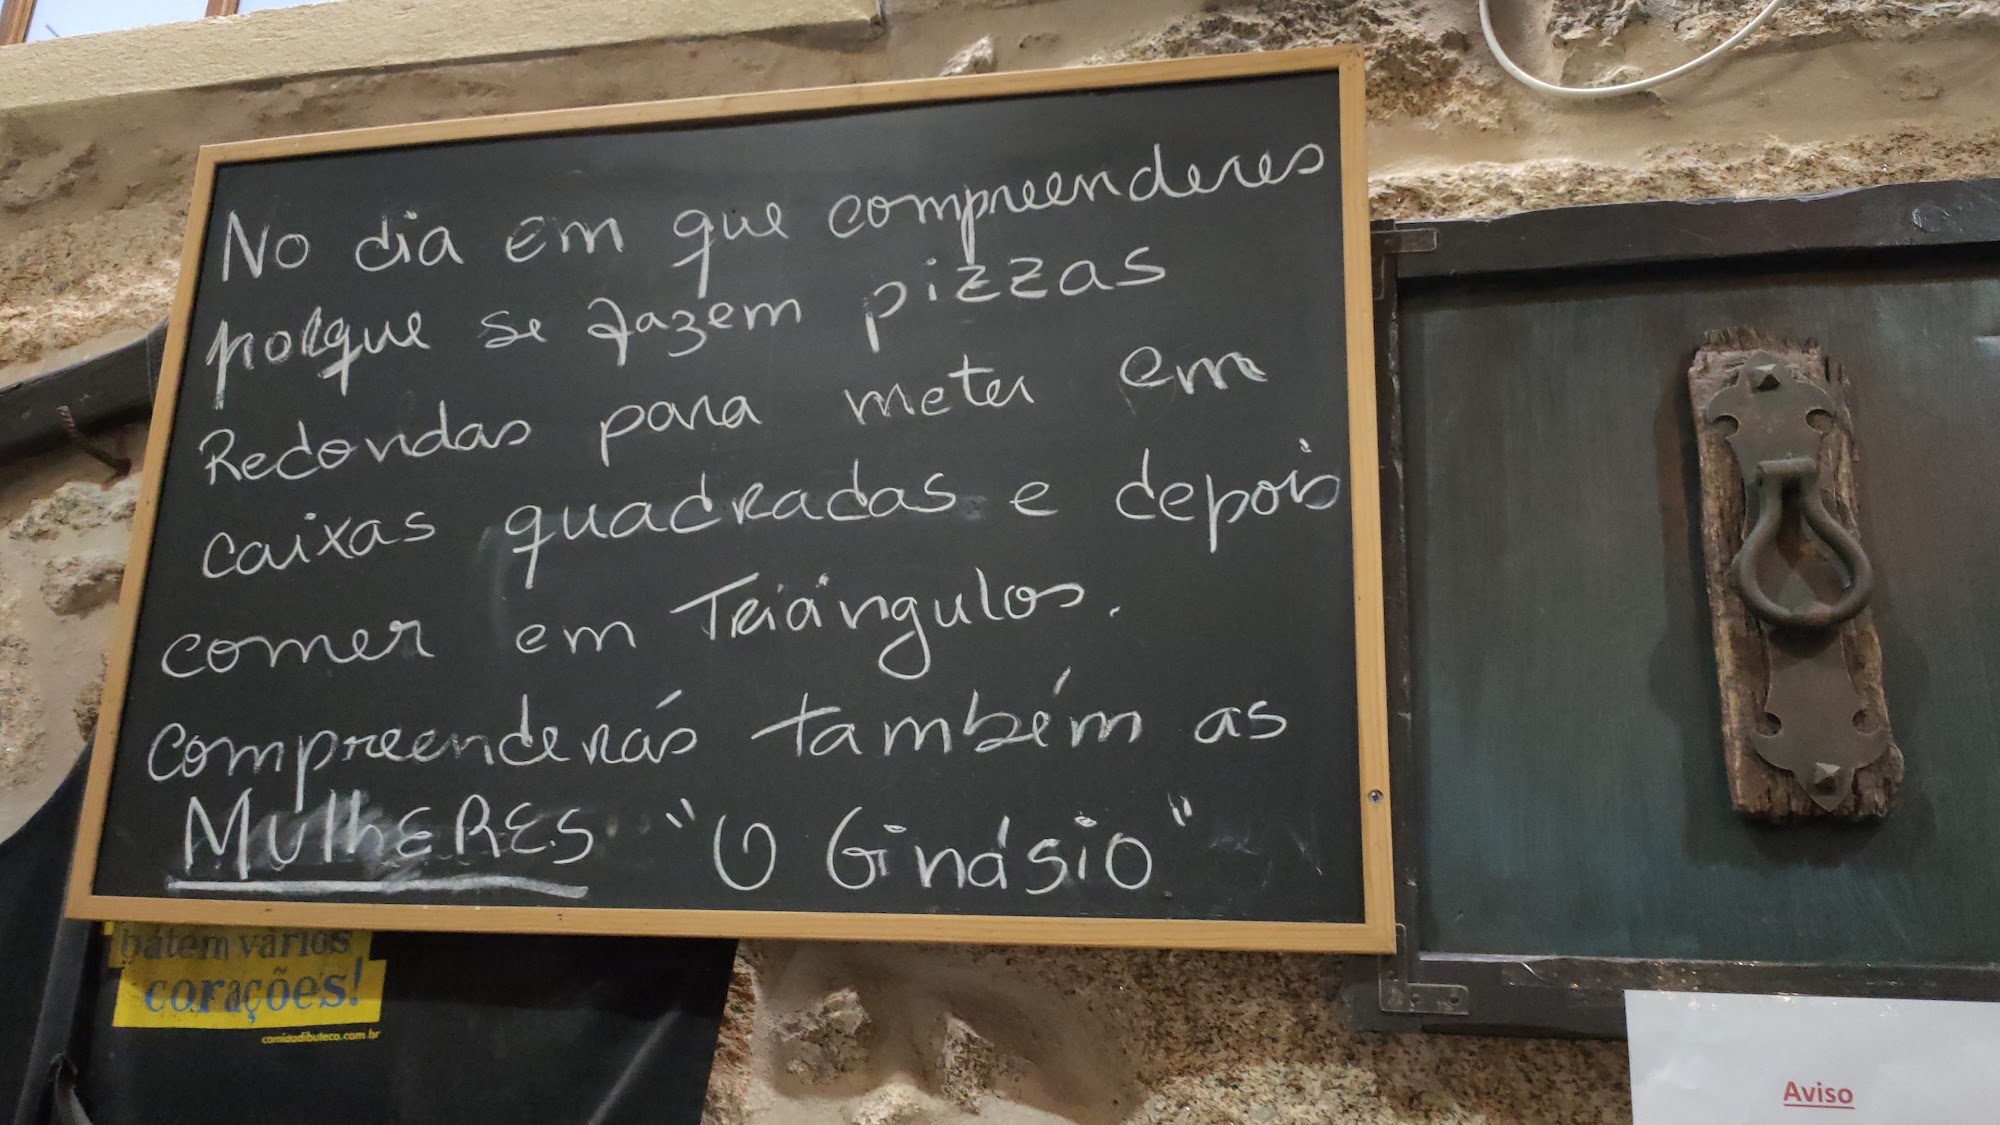 No dia em que compreenderes
porque se fazem pizzas
Redondas para meter em
caixas quadradas e depois
comer em Triângulos.
compreenderás também as
MulhERES "O Ginásio"
batem vários
corações!
comidadibuteco.com.br
Aviso